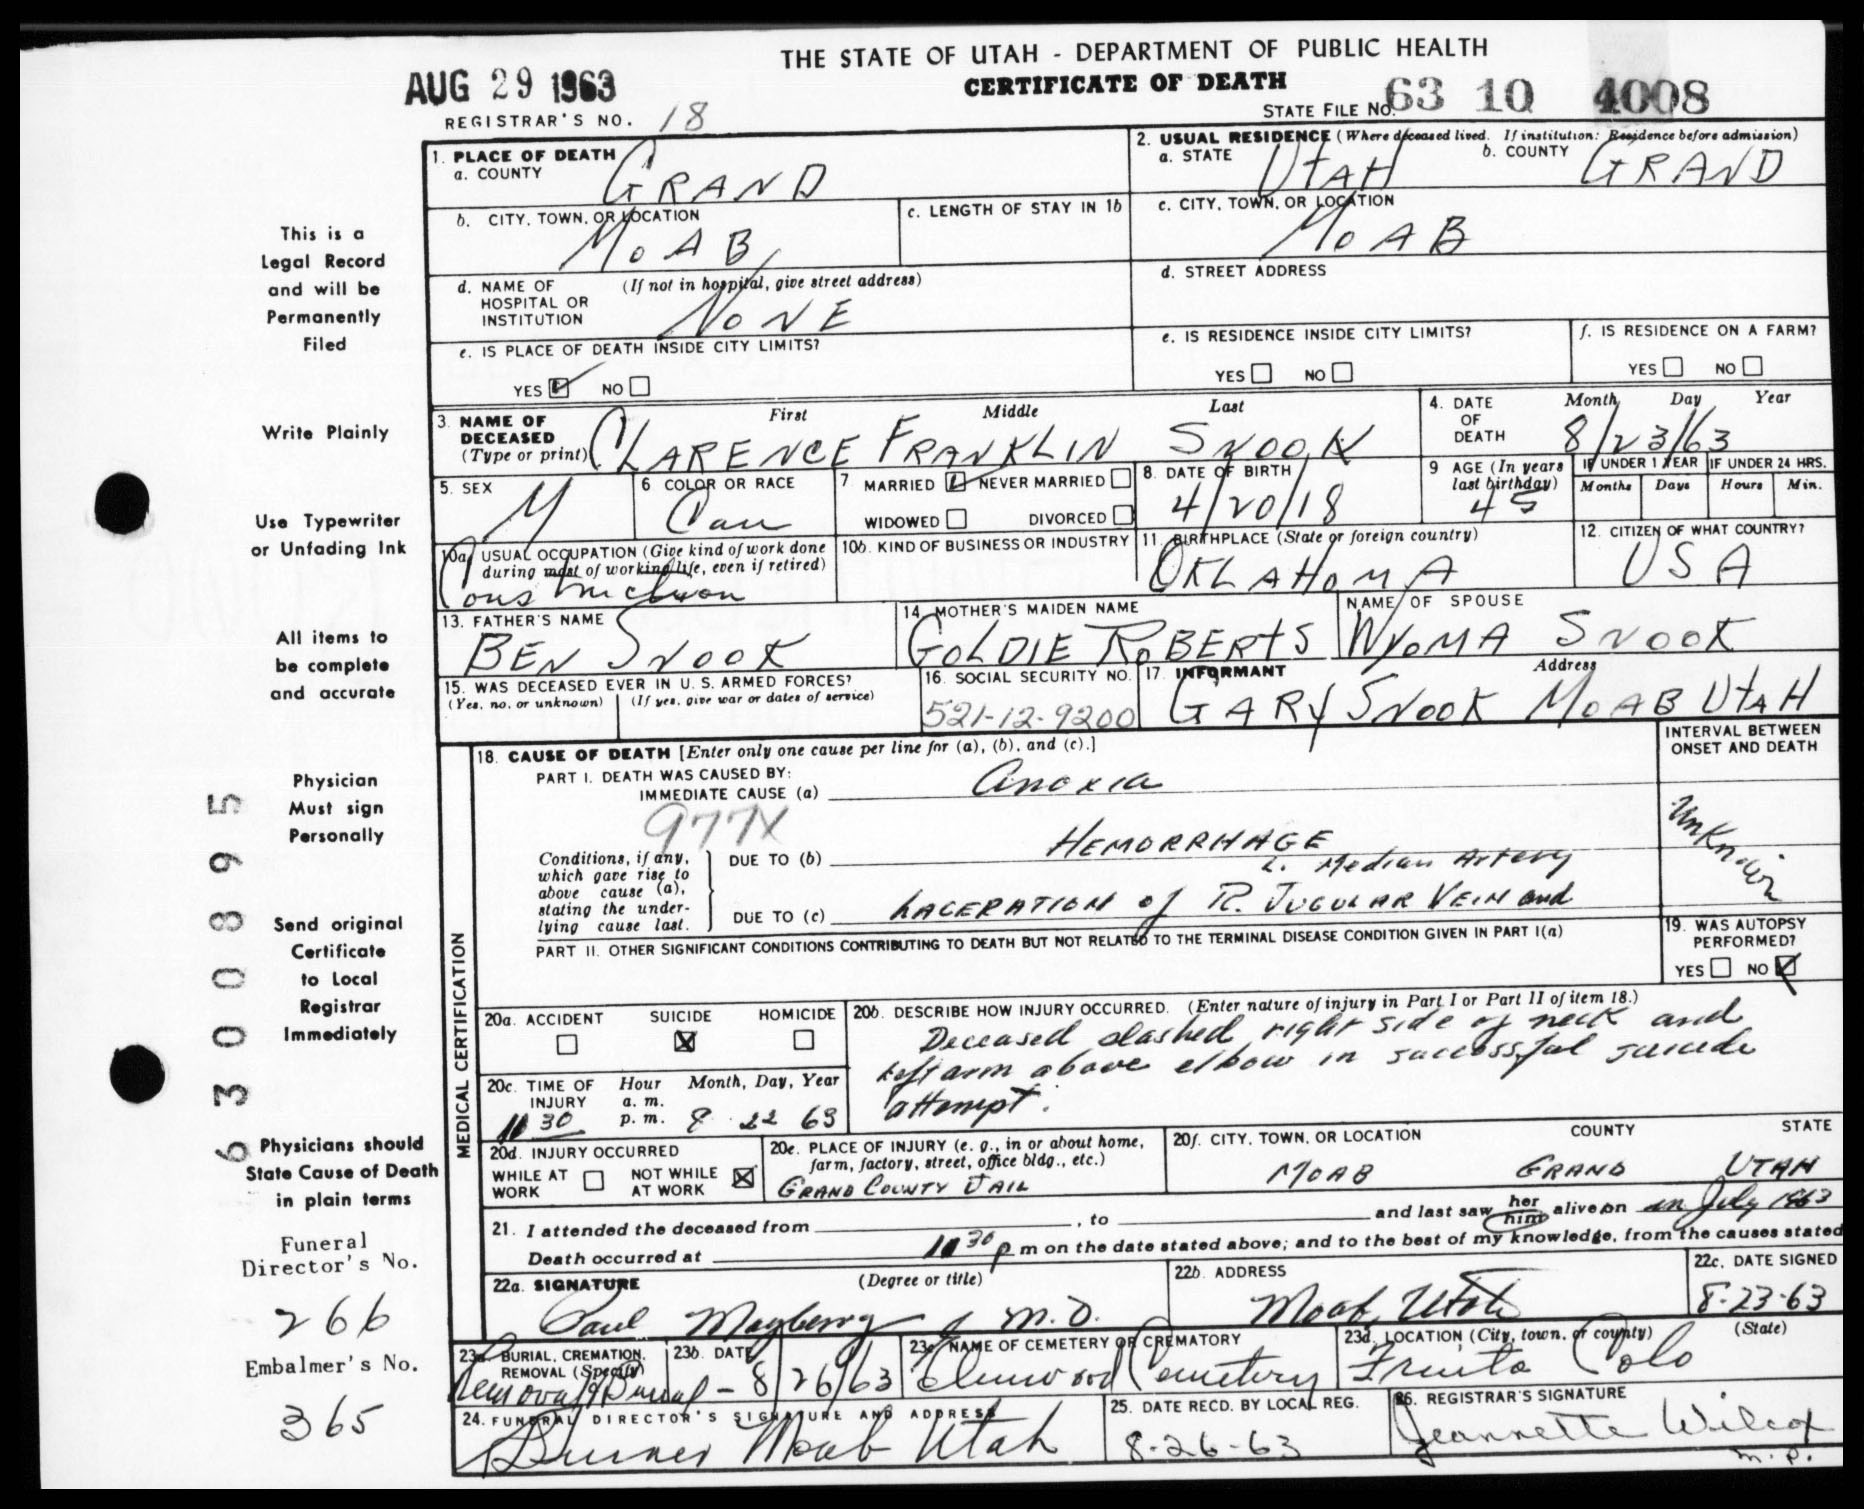 THE STATE OF UTAH - DEPARTMENT OF PUBLIC HEALTH
AUG 29 1963
CERTIFICATE OF DEATH
STATE FILE NO. 63 10 4008
REGISTRAR'S NO. 18
1. PLACE OF DEATH
a. COUNTY GRAND
2. USUAL RESIDENCE (Where deceased lived. If institution: Residence before admission)
a. STATE UTAH b. COUNTY GRAND
b. CITY, TOWN, OR LOCATION MOAB
c. LENGTH OF STAY IN 1b
c. CITY, TOWN, OR LOCATION MOAB
d. NAME OF HOSPITAL OR INSTITUTION (If not in hospital, give street address) NONE
d. STREET ADDRESS
e. IS PLACE OF DEATH INSIDE CITY LIMITS?
YES NO
e. IS RESIDENCE INSIDE CITY LIMITS?
YES NO
f. IS RESIDENCE ON A FARM?
YES NO
3. NAME OF DECEASED (Type or print) First Middle Last
CLARENCE FRANKLIN SNOOK
4. DATE OF DEATH Month Day Year
8/23/63
5. SEX M
6 COLOR OR RACE Cau
7 MARRIED NEVER MARRIED
WIDOWED DIVORCED
8. DATE OF BIRTH 4/20/18
9 AGE (In years last birthday) 45
IF UNDER 1 YEAR Months Days
IF UNDER 24 HRS. Hours Min.
10a. USUAL OCCUPATION (Give kind of work done during most of working life, even if retired)
Construction
10b. KIND OF BUSINESS OR INDUSTRY
11. BIRTHPLACE (State or foreign country) OKLAHOMA
12. CITIZEN OF WHAT COUNTRY? USA
13. FATHER'S NAME BEN SNOOK
14. MOTHER'S MAIDEN NAME GOLDIE ROBERTS
NAME OF SPOUSE WYOMA SNOOK
15. WAS DECEASED EVER IN U. S. ARMED FORCES?
(Yes, no, or unknown) (If yes, give war or dates of service)
16. SOCIAL SECURITY NO. 521-12-9200
17. INFORMANT Address
GARY SNOOK MOAB UTAH
18. CAUSE OF DEATH [Enter only one cause per line for (a), (b), and (c).]
INTERVAL BETWEEN ONSET AND DEATH
PART I. DEATH WAS CAUSED BY:
IMMEDIATE CAUSE (a) Anoxia
977X
Unknown
Conditions, if any, which gave rise to above cause (a), stating the underlying cause last.
DUE TO (b) HEMORRHAGE
L. Median Artery
DUE TO (c) LACERATION of R. JUGULAR VEIN and
PART II. OTHER SIGNIFICANT CONDITIONS CONTRIBUTING TO DEATH BUT NOT RELATED TO THE TERMINAL DISEASE CONDITION GIVEN IN PART I(a)
19. WAS AUTOPSY PERFORMED?
YES NO
MEDICAL CERTIFICATION
20a. ACCIDENT SUICIDE HOMICIDE
20b. DESCRIBE HOW INJURY OCCURRED. (Enter nature of injury in Part I or Part II of item 18.)
Deceased slashed right side of neck and
left arm above elbow in successful suicide
attempt.
20c. TIME OF INJURY Hour Month, Day, Year
a. m.
p. m.
11 30 8 22 63
20d. INJURY OCCURRED
WHILE AT WORK NOT WHILE AT WORK
20e. PLACE OF INJURY (e. g., in or about home, farm, factory, street, office bldg., etc.)
GRAND COUNTY JAIL
20f. CITY, TOWN, OR LOCATION COUNTY STATE
MOAB GRAND UTAH
21. I attended the deceased from , to and last saw her him alive on in July 1963
Death occurred at 11 30 p m on the date stated above; and to the best of my knowledge, from the causes stated
22a. SIGNATURE (Degree or title)
Paul Mayberry M.D.
22b. ADDRESS Moab, Utah
22c. DATE SIGNED 8-23-63
23a. BURIAL, CREMATION, REMOVAL (Specify) Removal & Burial
23b. DATE 8/26/63
23c. NAME OF CEMETERY OR CREMATORY Elmwood Cemetery
23d. LOCATION (City, town, or county) (State)
Fruita Colo
24. FUNERAL DIRECTOR'S SIGNATURE AND ADDRESS
Moab Utah
25. DATE RECD. BY LOCAL REG. 8-26-63
26. REGISTRAR'S SIGNATURE
Jeannette Wilcox
This is a
Legal Record
and will be
Permanently
Filed
Write Plainly
Use Typewriter
or Unfading Ink
All items to
be complete
and accurate
Physician
Must sign
Personally
Send original
Certificate
to Local
Registrar
Immediately
Physicians should
State Cause of Death
in plain terms
Funeral
Director's No.
266
Embalmer's No.
365
6300895